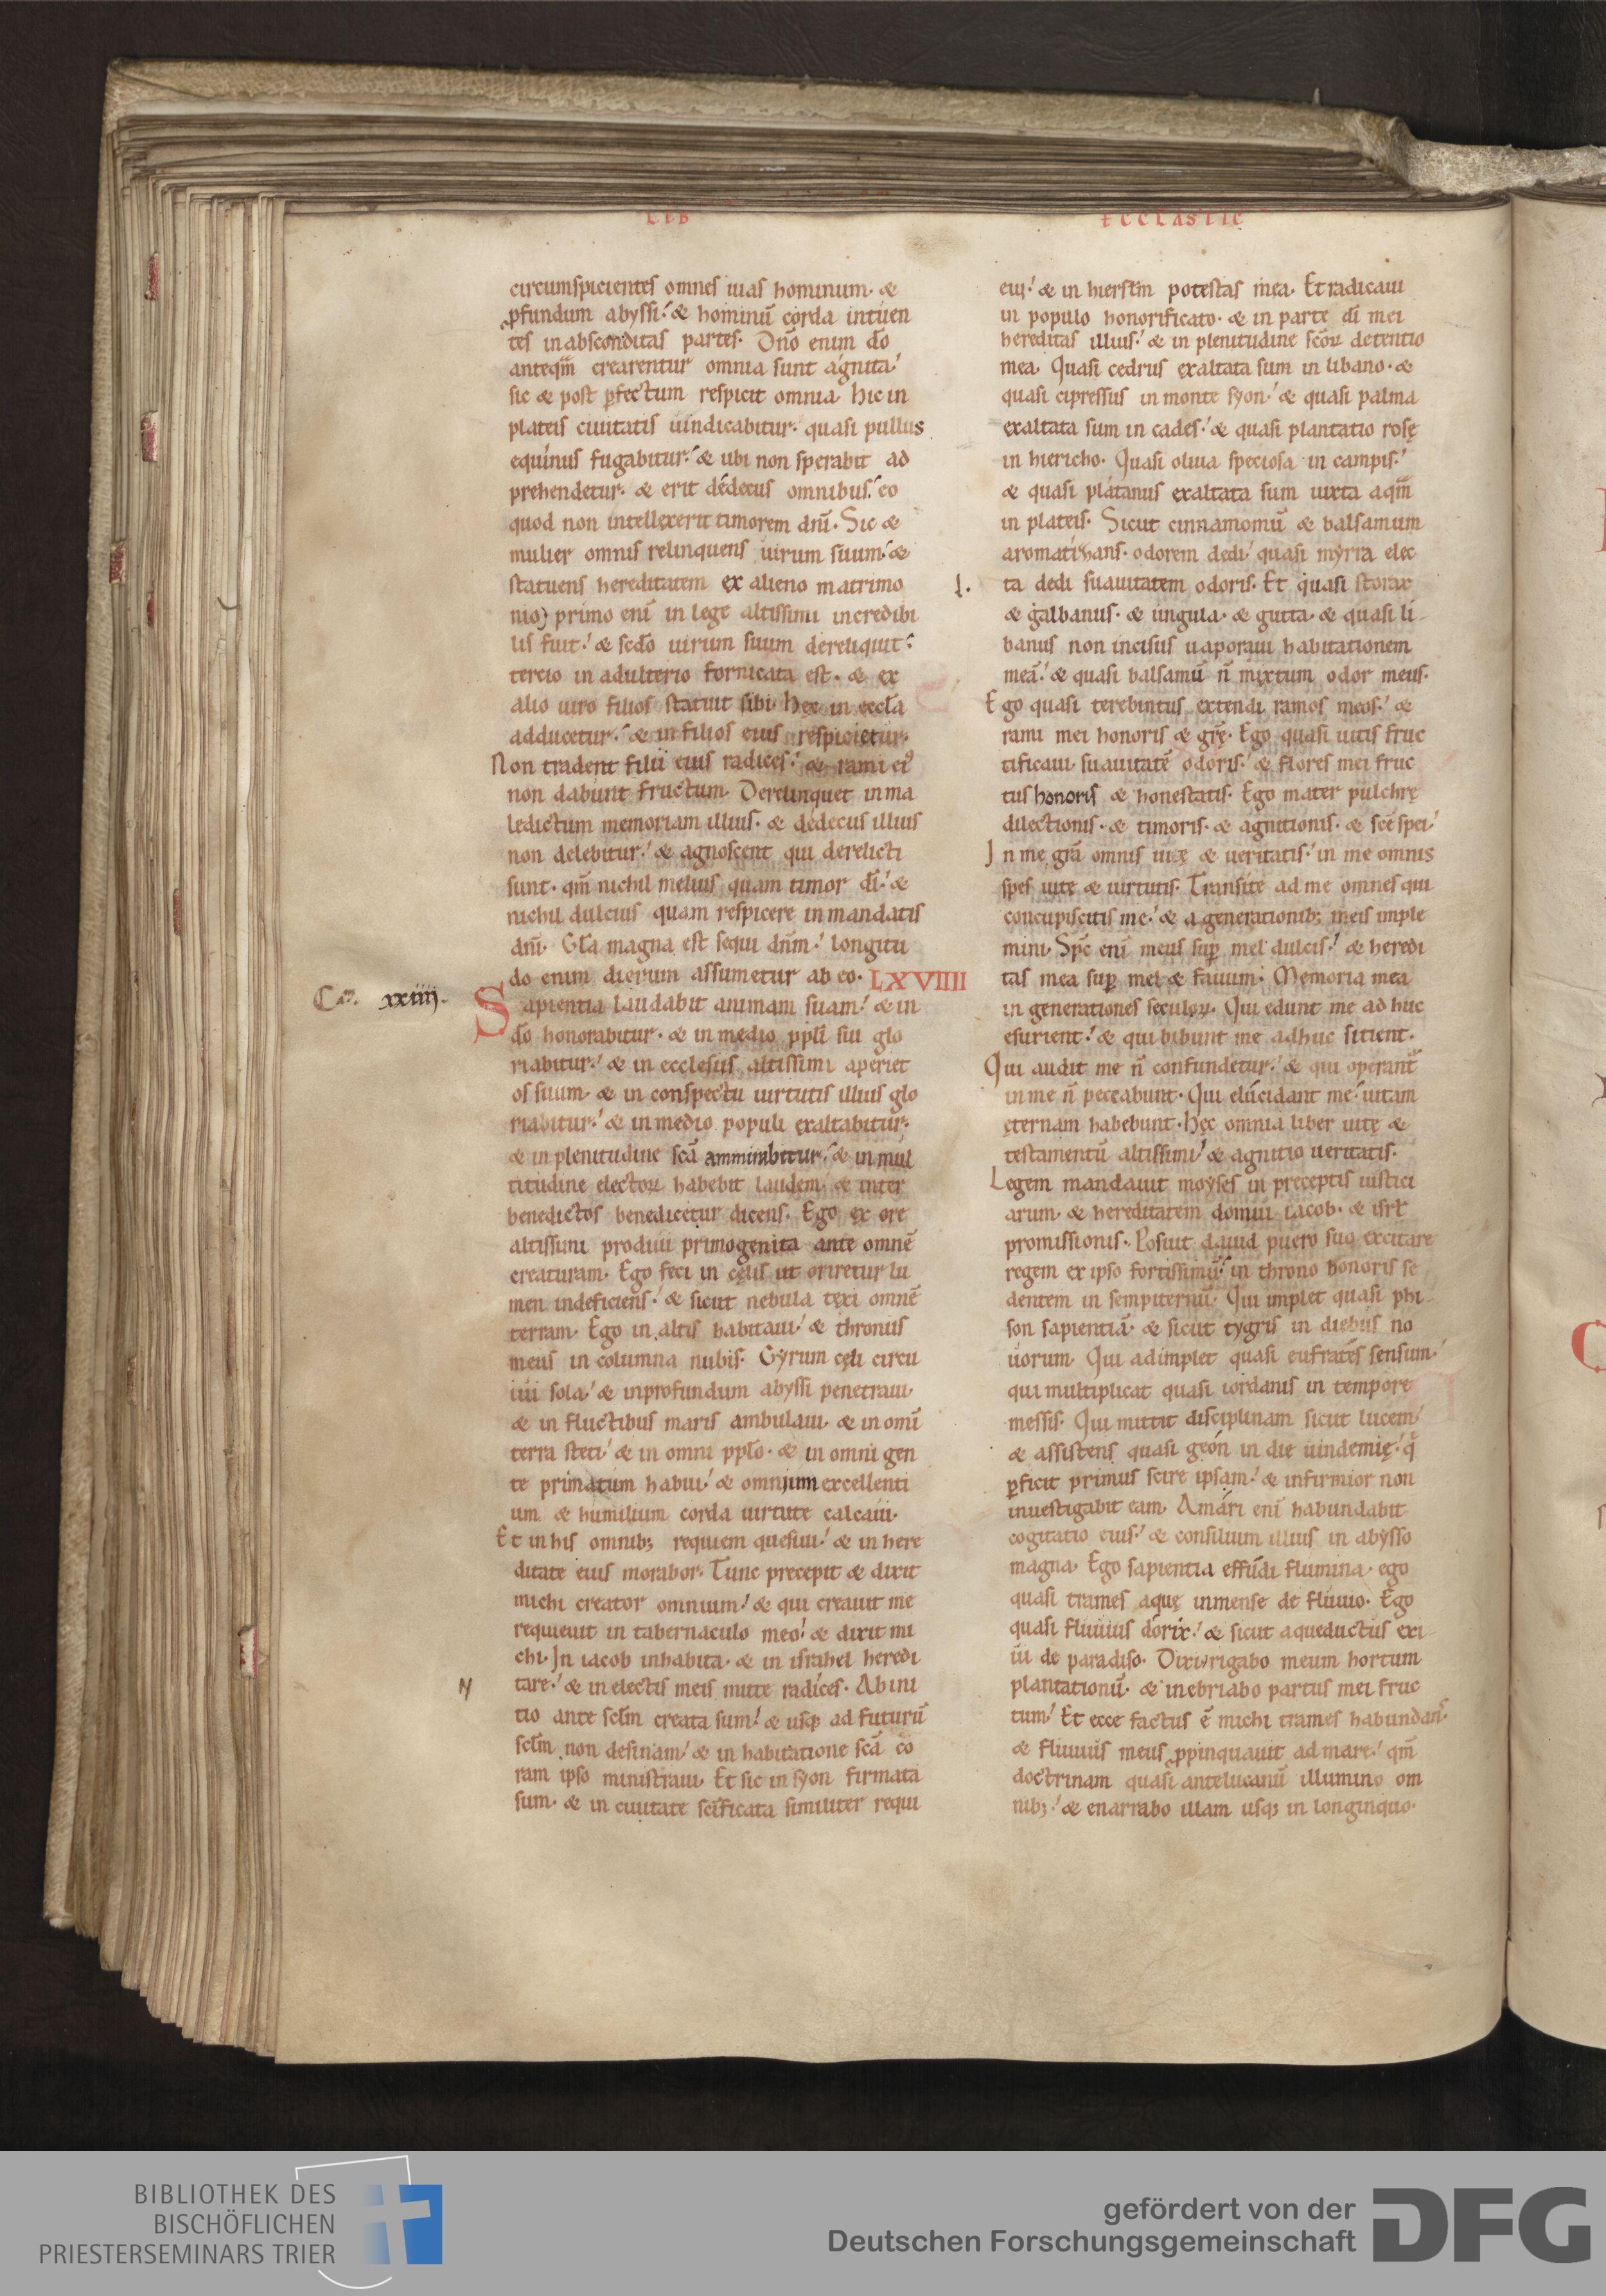 LIB
ECCLASTIC
circumspicientes omnes uias hominum· &
ꝓfundum abyssi· & hominū corda intuen
tes in absconditas partes· Dn̄o enim dō
anteqm̄ crearentur omnia sunt agnita·
sic & post ꝑfectum respicit omnia· Hic in
plateis ciuitatis uindicabitur· quasi pullus
equinus fugabitur· & ubi non sperabit ad
prehendetur· & erit dedecus omnibus· eo
quod non intellexerit timorem dn̄i· Sic &
mulier omnis relinquens uirum suum· &
statuens hereditatem ex alieno matrimo
nio) primo enī in lege altissimi incredibi
lis fuit· & scdo uirum suum dereliquit·
tercio in adulterio fornicata est· & ex
alio uiro filios statuit sibi· Hęc in eccl̄a
adducetur· & in filios eius respicietur·
Non tradent filii eius radices· & rami ei᷒
non dabunt fructum· Derelinquet in ma
ledictum memoriam illius· & dedecus illius
non delebitur· & agnoscent qui derelicti
sunt· qm̄ nichil melius quam timor dī· &
nichil dulcius quam respicere in mandatis
dn̄i· Gl̄a magna est sequi dn̄m· longitu
do enim dierum assumetur ab eo· LXVIIII
Cam. xxiiij.
Sapientia laudabit animam suam· & in
dō honorabitur· & in medio ppli sui glo
riabitur· & in ecclesiis altissimi aperiet
os suum· & in conspectu uirtutis illius glo
riabitur· & in medio populi exaltabitur·
& in plenitudine scā ammirabitur· & in mul
titudine electoꝝ habebit laudem· & inter
benedictos benedicetur dicens· Ego ex ore
altissimi prodiui primogenita ante omnē
creaturam· Ego feci in cęlis ut oriretur lu
men indeficiens· & sicut nebula texi omnē
terram· Ego in altis habitaui· & thronus
meus in columna nubis· Gyrum cęli circu
iui sola· & in profundum abyssi penetraui
& in fluctibus maris ambulaui· & in omī
terra steti· & in omni pplo· & in omni gen
te primatum habui· & omnium excellenti
um & humilium corda uirtute calcaui·
Et in his omnibꝫ requiem quesiui· & in here
ditate eius morabor· Tunc precepit & dixit
michi creator omnium· & qui creauit me
requieuit in tabernaculo meo· & dixit mi
chi· In iacob inhabita· & in israhel heredi
tare· & in electis meis mitte radices· Ab ini
tio ante sclm creata sum· & usqꝫ ad futurū
sclm non desinam· & in habitatione scā co
ram ipso ministraui· Et sic in syon firmata
sum· & in ciuitate scīficata similiter requi
eui· & in hierslm̄ potestas mea· Et radicaui
in populo honorificato· & in parte dī mei
hereditas illius· & in plenitudine scōꝝ detentio
mea· Quasi cedrus exaltata sum in libano· &
quasi cipressus in monte syon· & quasi palma
exaltata sum in cades· & quasi plantatio rosę
in hiericho· Quasi oliua speciosa in campis·
& quasi platanus exaltata sum iuxta aqm̄
in plateis· Sicut cinnamomū & balsamum
aromatizans· odorem dedi· quasi myrra elec
ta dedi suauitatem odoris· Et quasi storax
& galbanus· & ungula· & gutta· & quasi li-
banus non incisus uaporaui habitationem
meā· & quasi balsamū n̄ mixtum odor meus·
Ego quasi terebintus extendi ramos meos· &
rami mei honoris & grę· Ego quasi uitis fruc
tificaui suauitatē odoris· & flores mei fruc
tus honoris & honestatis· Ego mater pulchrę
dilectionis· & timoris· & agnitionis· & scē spei·
In me grā omnis uię & ueritatis· in me omnis
spes uitę & uirtutis· Transite ad me omnes qui
concupiscitis me· & a generationibꝫ meis imple
mini· Spc̄ enī meus suꝑ mel dulcis· & heredi
tas mea suꝑ mel & fauum· Memoria mea
in generationes seculoꝝ· Qui edunt me ad huc
esurient· & qui bibunt me adhuc sitient·
Qui audit me n̄ confundetur· & qui operant᷑
in me n̄ peccabunt· Qui elucidant me· uitam
ęternam habebunt· Hęc omnia liber uitę &
testamentū altissimi· & agnitio ueritatis·
Legem mandauit moyses in preceptis iustici
arum· & hereditatem domui iacob· & isrl
promissionis· Posuit dauid puero suo excitare
regem ex ipso fortissimū· in throno honoris se
dentem in sempiternū· Qui implet quasi phi
son sapientiā· & sicut tygris in diebus no
uorum· Qui adimplet quasi eufrates sensum·
qui multiplicat quasi iordanis in tempore
messis· Qui mittit disciplinam sicut lucem·
& assistens quasi geon in die uindemię· q̄
ꝑficit primus scire ipsam· & infirmior non
inuestigabit eam· A mari enī habundabit
cogitatio eius· & consilium illius in abysso
magna· Ego sapientia effudi flumina· ego
quasi trames aquę inmense de fluuio· Ego
quasi fluuius dorix· & sicut aqueductus exi
ui de paradiso· Dixi· rigabo meum hortum
plantationū· & inebriabo partus mei fruc
tum· Et ecce factus ē michi trames habundans·
& fluuius meus ꝓpinquauit ad mare· qm̄
doctrinam quasi antelucanū illumino om
nibꝫ· & enarrabo illam usqꝫ in longinquo·
BIBLIOTHEK DES
BISCHÖFLICHEN
PRIESTERSEMINARS TRIER
gefördert von der
Deutschen Forschungsgemeinschaft
DFG